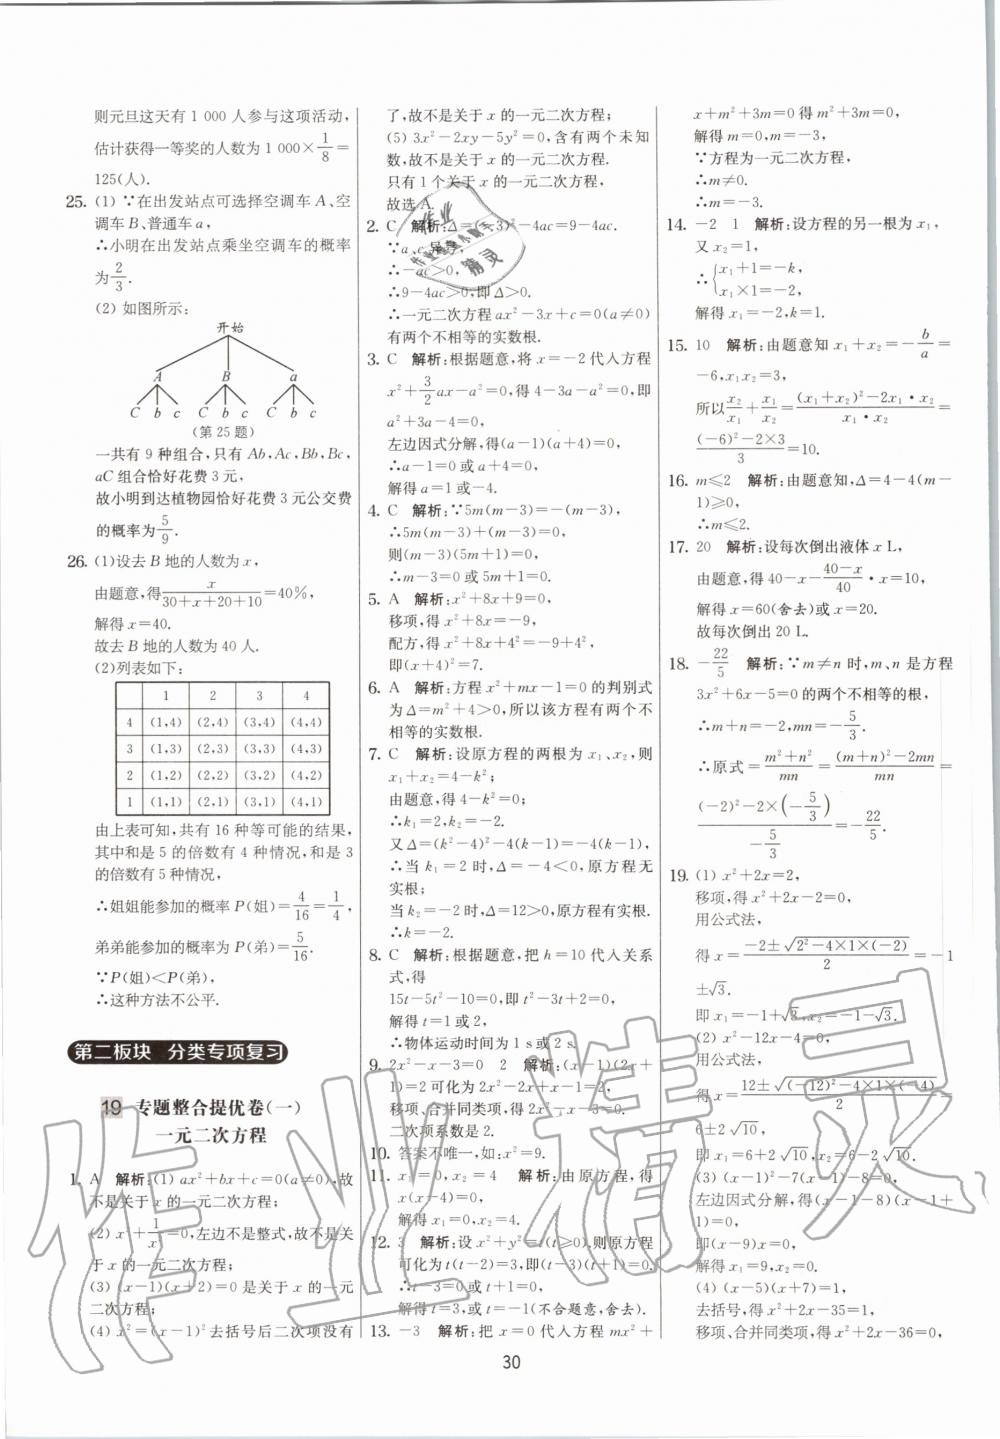 则元旦这天有 1 000 人参与这项活动,
估计获得一等奖的人数为 1 000×1/8=
125(人).
25. (1) ∵在出发站点可选择空调车 A、空
调车 B、普通车 a,
∴小明在出发站点乘坐空调车的概率
为2/3.
(2) 如图所示:
开始
A B a
C b c C b c C b c
(第 25 题)
一共有 9 种组合,只有 Ab,Ac,Bb,Bc,
aC 组合恰好花费 3 元,
故小明到达植物园恰好花费 3 元公交费
的概率为5/9.
26. (1)设去 B 地的人数为 x,
由题意,得x/(30+x+20+10)=40%,
解得 x=40.
故去 B 地的人数为 40 人.
(2)列表如下:
1 2 3 4
4 (1,4) (2,4) (3,4) (4,4)
3 (1,3) (2,3) (3,3) (4,3)
2 (1,2) (2,2) (3,2) (4,2)
1 (1,1) (2,1) (3,1) (4,1)
由上表可知,共有 16 种等可能的结果,
其中和是 5 的倍数有 4 种情况,和是 3
的倍数有 5 种情况,
∴姐姐能参加的概率 P(姐)=4/16=1/4,
弟弟能参加的概率为 P(弟)=5/16.
∵P(姐)<P(弟),
∴这种方法不公平.
第二板块 分类专项复习
19 专题整合提优卷(一)
一元二次方程
1. A 解析:(1) ax²+bx+c=0(a≠0),故
不是关于 x 的一元二次方程;
(2) x²+1/x²=0,左边不是整式,故不是关
于 x 的一元二次方程;
(3) (x-1)(x+2)=0 是关于 x 的一元
二次方程;
(4) x²=(x-1)²去括号后二次项没有
了,故不是关于 x 的一元二次方程;
(5) 3x²-2xy-5y²=0,含有两个未知
数,故不是关于 x 的一元二次方程.
只有 1 个关于 x 的一元二次方程,
故选 A.
2. C 解析:Δ=(-3)²-4ac=9-4ac.
∴-ac>0,
∴9-4ac>0,即 Δ>0.
∴一元二次方程 ax²-3x+c=0(a≠0)
有两个不相等的实数根.
3. C 解析:根据题意,将 x=-2 代入方程
x²+3/2ax-a²=0,得 4-3a-a²=0,即
a²+3a-4=0,
左边因式分解,得(a-1)(a+4)=0,
∴a-1=0 或 a+4=0,
解得 a=1 或-4.
4. C 解析:∵5m(m-3)=-(m-3),
∴5m(m-3)+(m-3)=0,
则(m-3)(5m+1)=0,
∴m-3=0 或 5m+1=0.
5. A 解析:x²+8x+9=0,
移项,得 x²+8x=-9,
配方,得 x²+8x+4²=-9+4²,
即(x+4)²=7.
6. A 解析:方程 x²+mx-1=0 的判别式
为 Δ=m²+4>0,所以该方程有两个不
相等的实数根.
7. C 解析:设原方程的两根为 x₁、x₂,则
x₁+x₂=4-k²;
由题意,得 4-k²=0;
∴k₁=2,k₂=-2.
又Δ=(k²-4)²-4(k-1)=-4(k-1),
∴当 k₁=2 时,Δ=-4<0,原方程无
实根;
当 k₂=-2 时,Δ=12>0,原方程有实根.
∴k=-2.
8. C 解析:根据题意,把 h=10 代入关系
式,得
15t-5t²-10=0,即 t²-3t+2=0,
解得 t=1 或 t=2,
∴物体运动时间为 1 s或 2 s.
9. 2x²-x-3=0 2 解析:(x-1)(2x+
1)=2 可化为 2x²-2x+x-1-2=0,
移项、合并同类项,得 2x²-x-3=0,
二次项系数是 2.
10. 答案不唯一,如:x²=9.
11. x₁=0,x₂=4 解析:由原方程,得
x(x-4)=0,
解得 x₁=0,x₂=4.
12. 3 解析:设 x²+y²=t(t≥0),则原方程
可化为 t(t-2)=3,即(t-3)(t+1)=0.
∴t-3=0 或 t+1=0,
解得 t=3,或 t=-1(不合题意,舍去).
13. -3 解析:把 x=0 代入方程 mx²+
x+m²+3m=0 得 m²+3m=0,
解得 m=0,m=-3,
∵方程为一元二次方程,
∴m≠0.
∴m=-3.
14. -2 1 解析:设方程的另一根为 x₁,
又 x₂=1,
∴{x₁+1=-k, x₁·1=-2,
解得 x₁=-2,k=1.
15. 10 解析:由题意知 x₁+x₂=-b/a=
-6,x₁x₂=3,
所以x₂/x₁+x₁/x₂=((x₁+x₂)²-2x₁·x₂)/(x₁·x₂)=
((-6)²-2×3)/3=10.
16. m≤2 解析:由题意知,Δ=4-4(m-
1)≥0,
∴m≤2.
17. 20 解析:设每次倒出液体 x L,
由题意,得 40-x-(40-x)/40·x=10,
解得 x=60(舍去)或 x=20.
故每次倒出 20 L.
18. -22/5 解析:∵m≠n 时,m、n 是方程
3x²+6x-5=0 的两个不相等的根,
∴m+n=-2,mn=-5/3.
∴原式=(m²+n²)/mn=((m+n)²-2mn)/mn=
((-2)²-2×(-5/3))/(-5/3)=-22/5.
19. (1) x²+2x=2,
移项,得 x²+2x-2=0,
用公式法,
得 x=(-2±√(2²-4×1×(-2)))/2=-1
±√3.
即 x₁=-1+√3,x₂=-1-√3.
(2) x²-12x-4=0,
用公式法,
得 x=(12±√((-12)²-4×1×(-4)))/2=
6±2√10,
即 x₁=6+2√10,x₂=6-2√10.
(3) (x-1)²-7(x-1)-8=0,
左边因式分解,得(x-1-8)(x-1+
1)=0,
即(x-9)x=0,
解得 x₁=9,x₂=0.
(4) (x-5)(x+7)=1,
去括号,得 x²+2x-35=1,
移项、合并同类项,得 x²+2x-36=0,
30
作业精灵